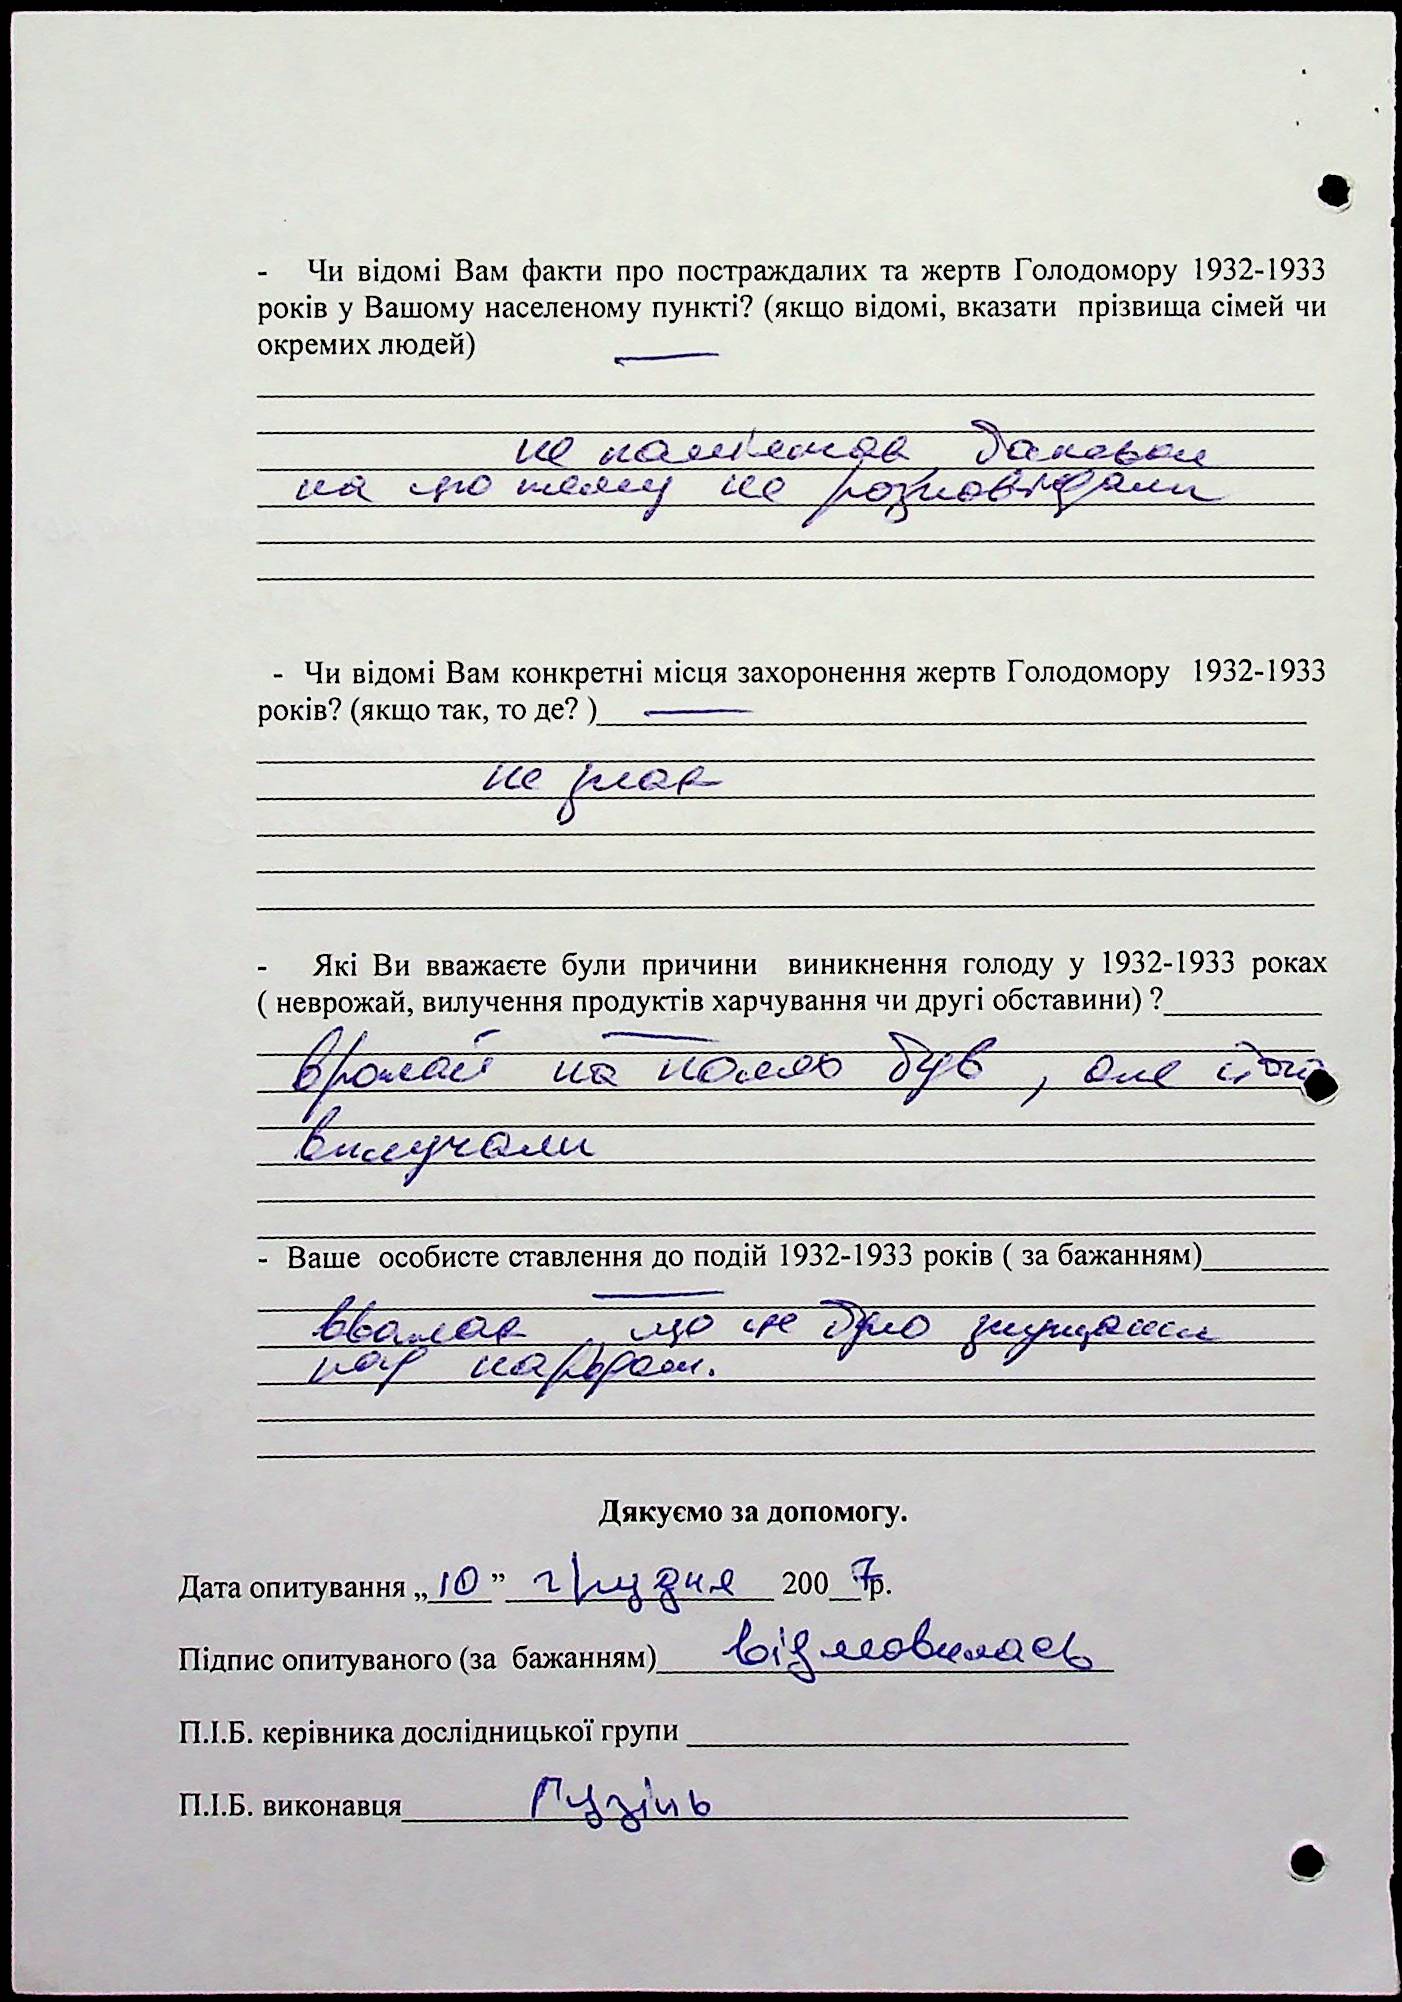 - Чи відомі Вам факти про постраждалих та жертв Голодомору 1932-1933
років у Вашому населеному пункті? (якщо відомі, вказати прізвища сімей чи
окремих людей)
не пам'ятаю,
на цю тему не розповідали
- Чи відомі Вам конкретні місця захоронення жертв Голодомору 1932-1933
років? (якщо так, то де? )
не знаю
- Які Ви вважаєте були причини виникнення голоду у 1932-1933 роках
( неврожай, вилучення продуктів харчування чи другі обставини) ?
врожай на полях був, але його
вилучали
- Ваше особисте ставлення до подій 1932-1933 років ( за бажанням)
вважаю, що це було знущання
над народом.
Дякуємо за допомогу.
Дата опитування „10” грудня 2007р.
Підпис опитуваного (за бажанням) відмовилась
П.І.Б. керівника дослідницької групи
П.І.Б. виконавця Гузінь